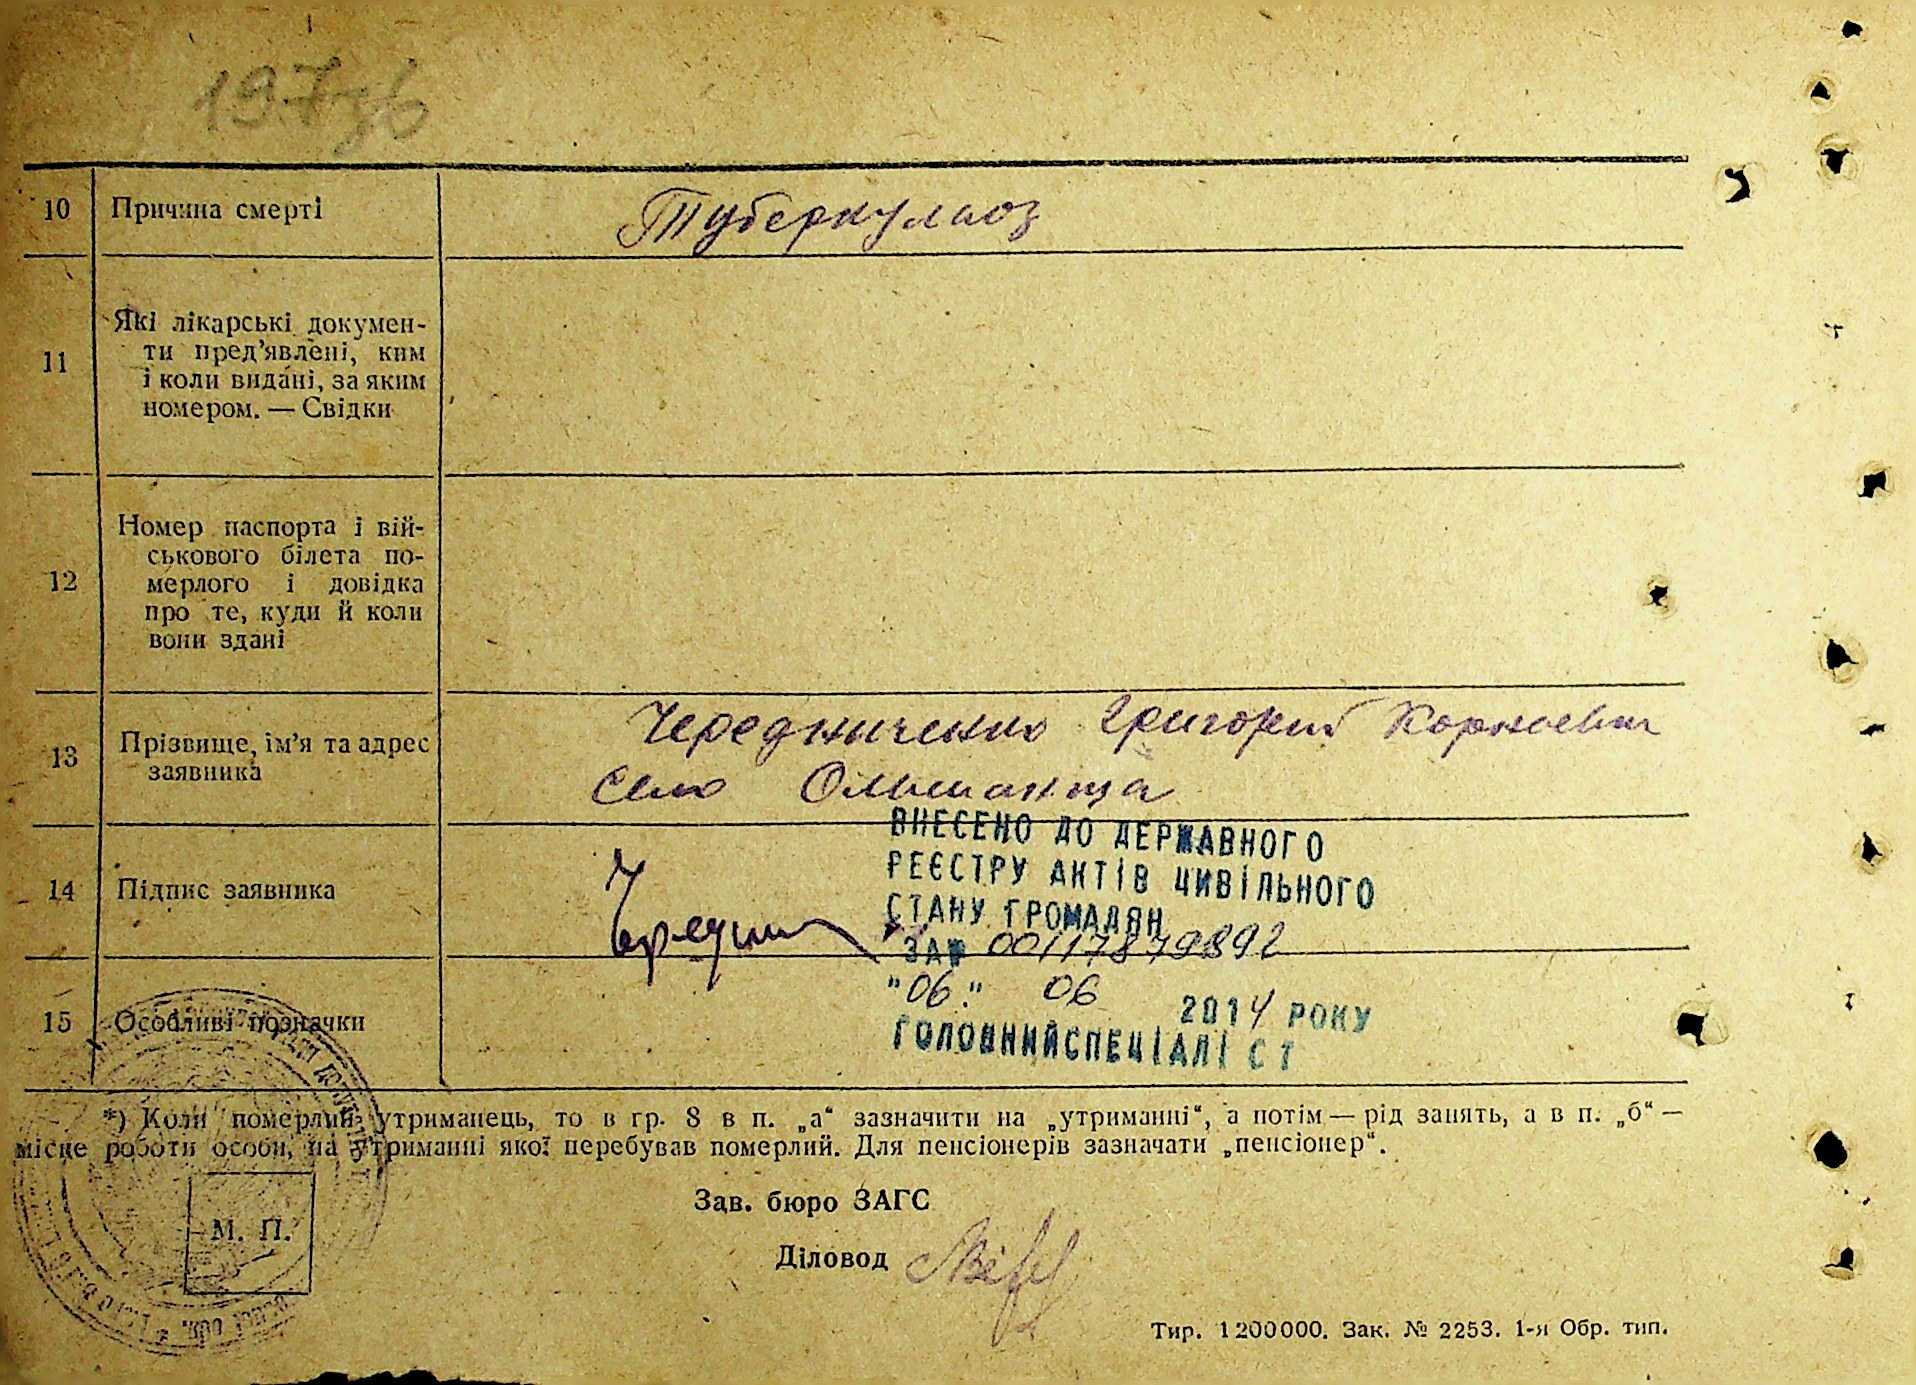 197зв
10 Причина смерті Туберкульоз
11 Які лікарські докумен-
ти пред'явлені, ким
і коли видані, за яким
номером. — Свідки
12 Номер паспорта і вій-
ськового білета по-
мерлого і довідка
про те, куди й коли
вони здані
13 Прізвище, ім'я та адрес
заявника
Чередниченко Григорий Корнеевич
село Ольшаница
14 Підпис заявника
ВНЕСЕНО ДО ДЕРЖАВНОГО
РЕЄСТРУ АКТІВ ЦИВІЛЬНОГО
СТАНУ ГРОМАДЯН
ЗА № 00117879892
"06" 06 2014 РОКУ
ГОЛОВНИЙ СПЕЦІАЛІСТ
15 Особливі позначки
*) Коли померлий утриманець, то в гр. 8 в п. „а“ зазначити на „утриманні“, а потім — рід занять, а в п. „б“ —
місце роботи особи, на утриманні якої перебував померлий. Для пенсіонерів зазначати „пенсіонер“.
М. П.
Зав. бюро ЗАГС
Діловод
Тир. 1200000. Зак. № 2253. 1-я Обр. тип.